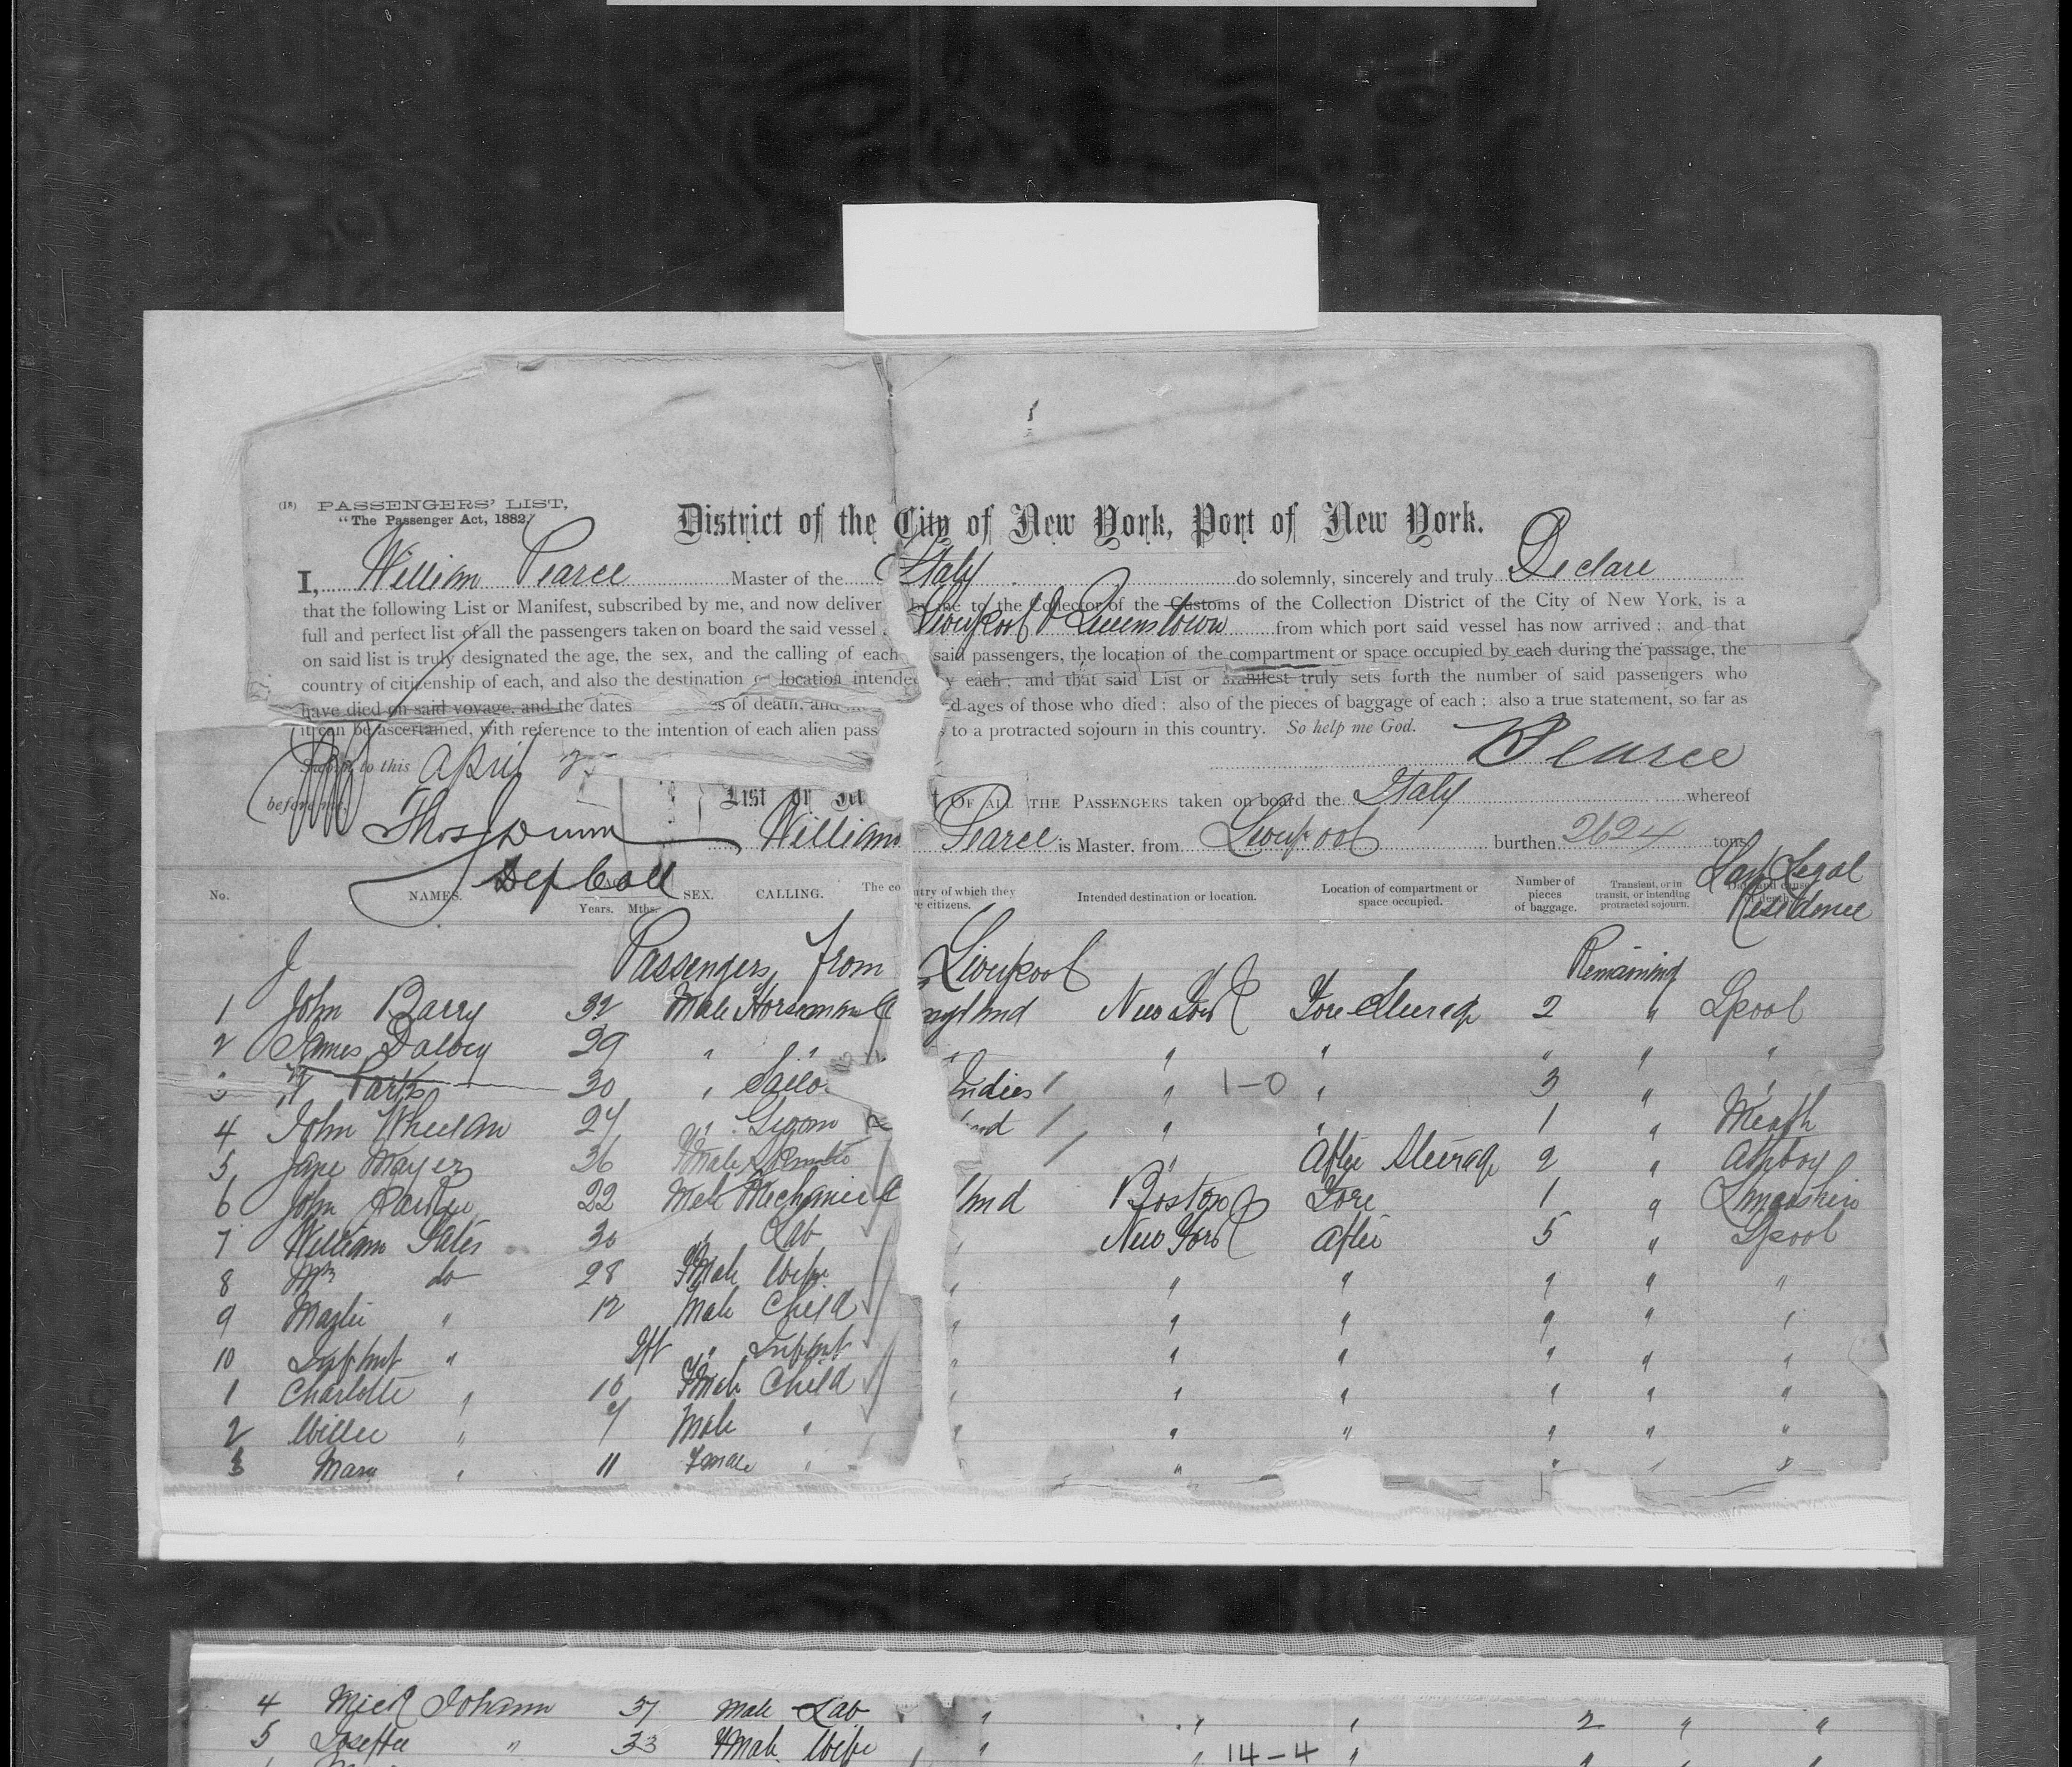 (18) PASSENGERS' LIST,
"The Passenger Act, 1882."
District of the City of New York, Port of New York.
I, William Pearce Master of the Italy do solemnly, sincerely and truly Declare
that the following List or Manifest, subscribed by me, and now deliver by me to the Collector of the Customs of the Collection District of the City of New York, is a
full and perfect list of all the passengers taken on board the said vessel Liverpool & Queenstown from which port said vessel has now arrived; and that
on said list is truly designated the age, the sex, and the calling of each said passengers, the location of the compartment or space occupied by each during the passage, the
country of citizenship of each, and also the destination or location intended y each; and that said List or Manifest truly sets forth the number of said passengers who
have died on said voyage, and the dates s of death, and d ages of those who died; also of the pieces of baggage of each; also a true statement, so far as
it can be ascertained, with reference to the intention of each alien pass s to a protracted sojourn in this country. So help me God.
Sworn to this April Pearce
before me
List or OF ALL THE PASSENGERS taken on board the Italy whereof
Thos Dunn William Pearce is Master, from Liverpool burthen 2624 tons
Dep Coll Last Legal Residence
No. NAMES. Years. Mths. SEX. CALLING. The co ntry of which they re citizens. Intended destination or location. Location of compartment or space occupied. Number of pieces of baggage. Transient, or in transit, or intending protracted sojourn. Date and cause of death.
Passengers from Liverpool Remaining
1 John Barry 32 Male Horseman ngland New York Fore Steerage 2 " Lpool
2 James Dalbey 29 " " " " " " " "
3 Park 30 " Sailo Indies " 1-0 " 3 " "
4 John Wheelan 24 " Groom nd " " 1 " Meath
5 Jane Mayer 36 Fmale " After Steerage 2 " Athboy
6 John 22 Male Mechanic land Boston Fore 1 "
7 William Yates 30 " Lab " New York After 5 " Lpool
8 Mrs do 28 Fmale Wife " " " " " "
9 12 Male Child " " " " " "
10 Infant " Inft " Infant " " " " " "
1 Charlotte " 10 Fmale Child " " " " " "
2 Willie " Male " " " " " " "
3 Mary " 11 Fmale " " " " "
4 Mick Johann 37 Male Lab " " " 2 " "
5 " 33 Fmale Wife " " 14-4 " " " "